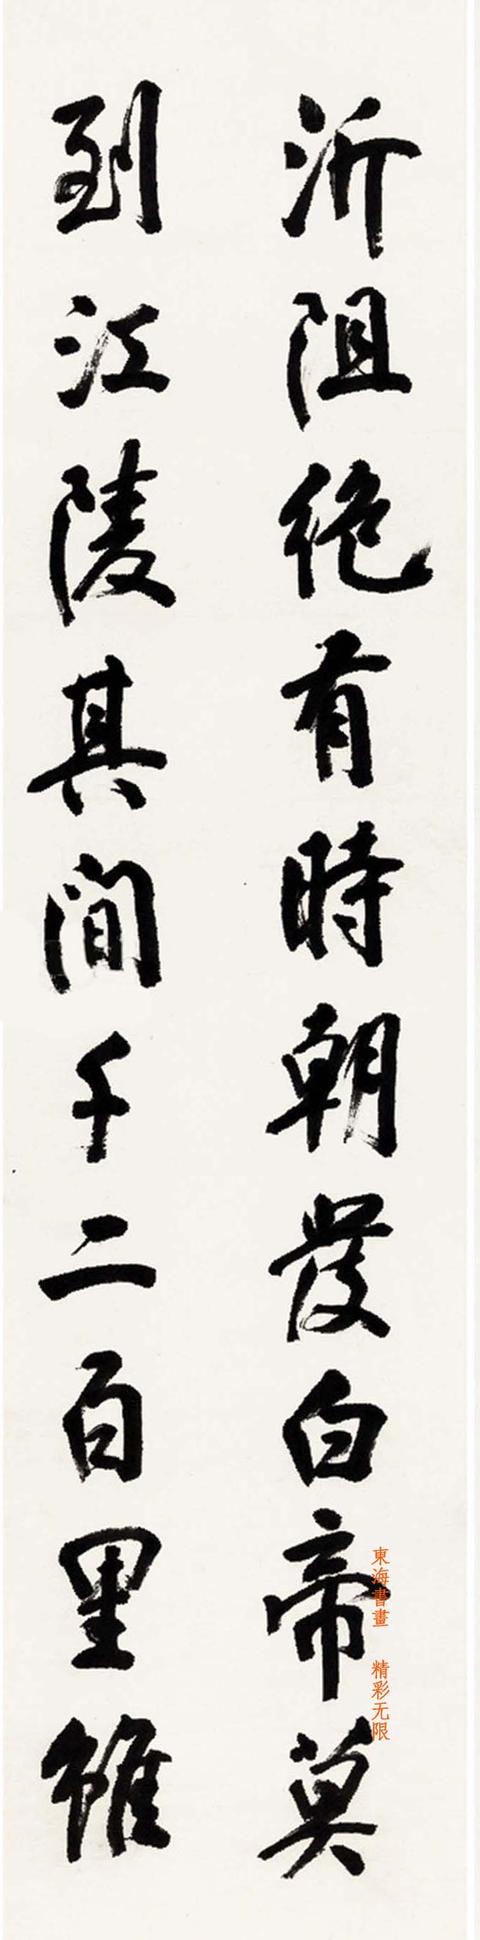 沂阻絶有時朝發白帝莫
到江陵其間千二百里雖
東海書畫 精彩无限